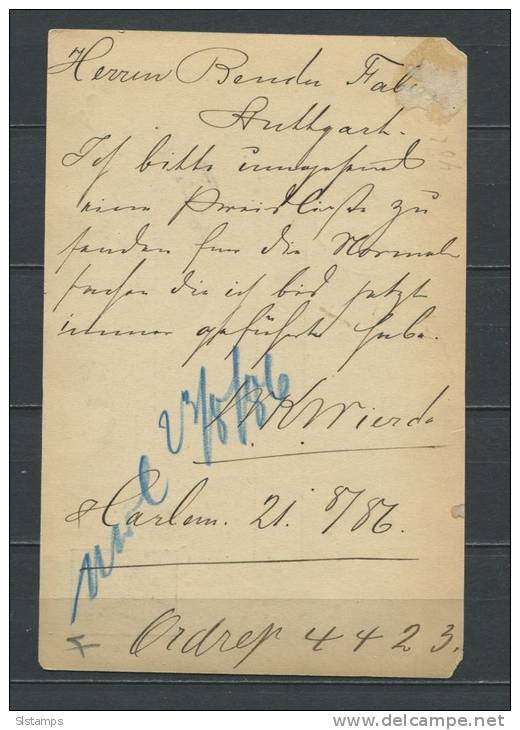 Herren Benda
Stuttgart.
Ich bitte umgehend
eine Preisliste zu
senden für die Normal
sachen die ich bis jetzt
immer geführt habe.
Wierda
23/8/86
Harlem. 21. 8/86.
4423.
Slstamps
www.delcampe.net